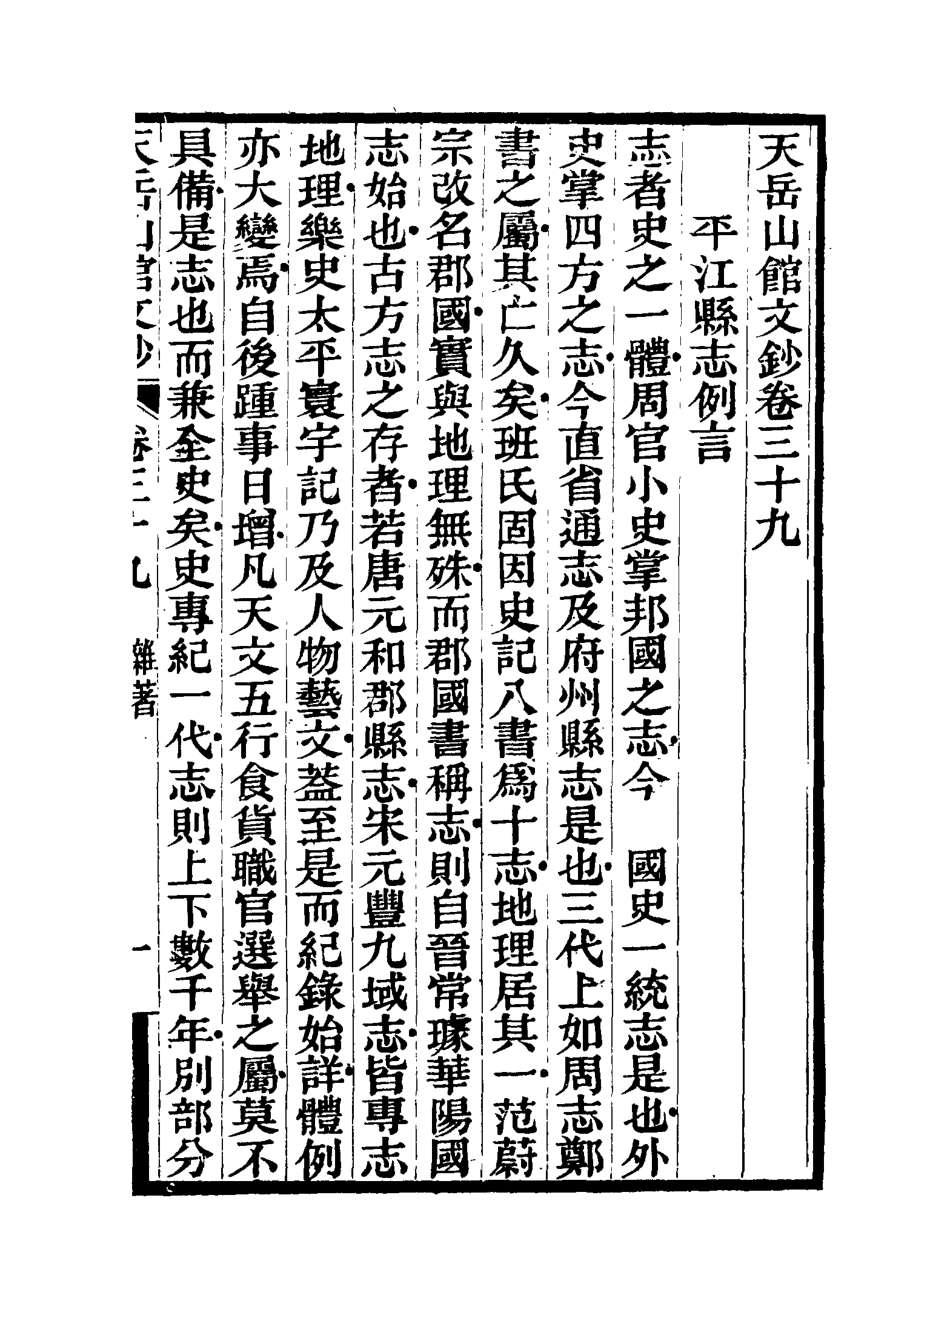 天岳山館文鈔卷三十九
平江縣志例言
志者史之一體周官小史掌邦國之志今　國史一統志是也外
史掌四方之志今直省通志及府州縣志是也三代上如周志鄭
書之屬其亡久矣班氏固因史記八書爲十志地理居其一范蔚
宗改名郡國實與地理無殊而郡國書稱志則自晉常璩華陽國
志始也古方志之存者若唐元和郡縣志宋元豐九域志皆專志
地理樂史太平寰宇記乃及人物藝文蓋至是而紀錄始詳體例
亦大變焉自後踵事日增凡天文五行食貨職官選舉之屬莫不
具備是志也而兼全史矣史專紀一代志則上下數千年別部分
天岳山館文鈔　卷三十九　雜著　一